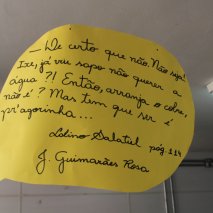 — De certo que não. Não seja!
Ixe, já viu sapo não querer a
água?! Então, arranja o cobre,
não é? Mas tem que ser é
pr'agorinha...
Lalino Salãtiel pág 114
J. Guimarães Rosa